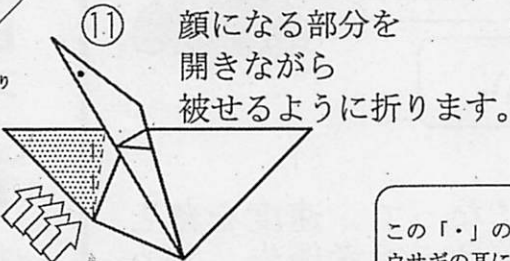 ⑪ 顔になる部分を
開きながら
被せるように折ります。
り
この「・」の
ウサギの耳に